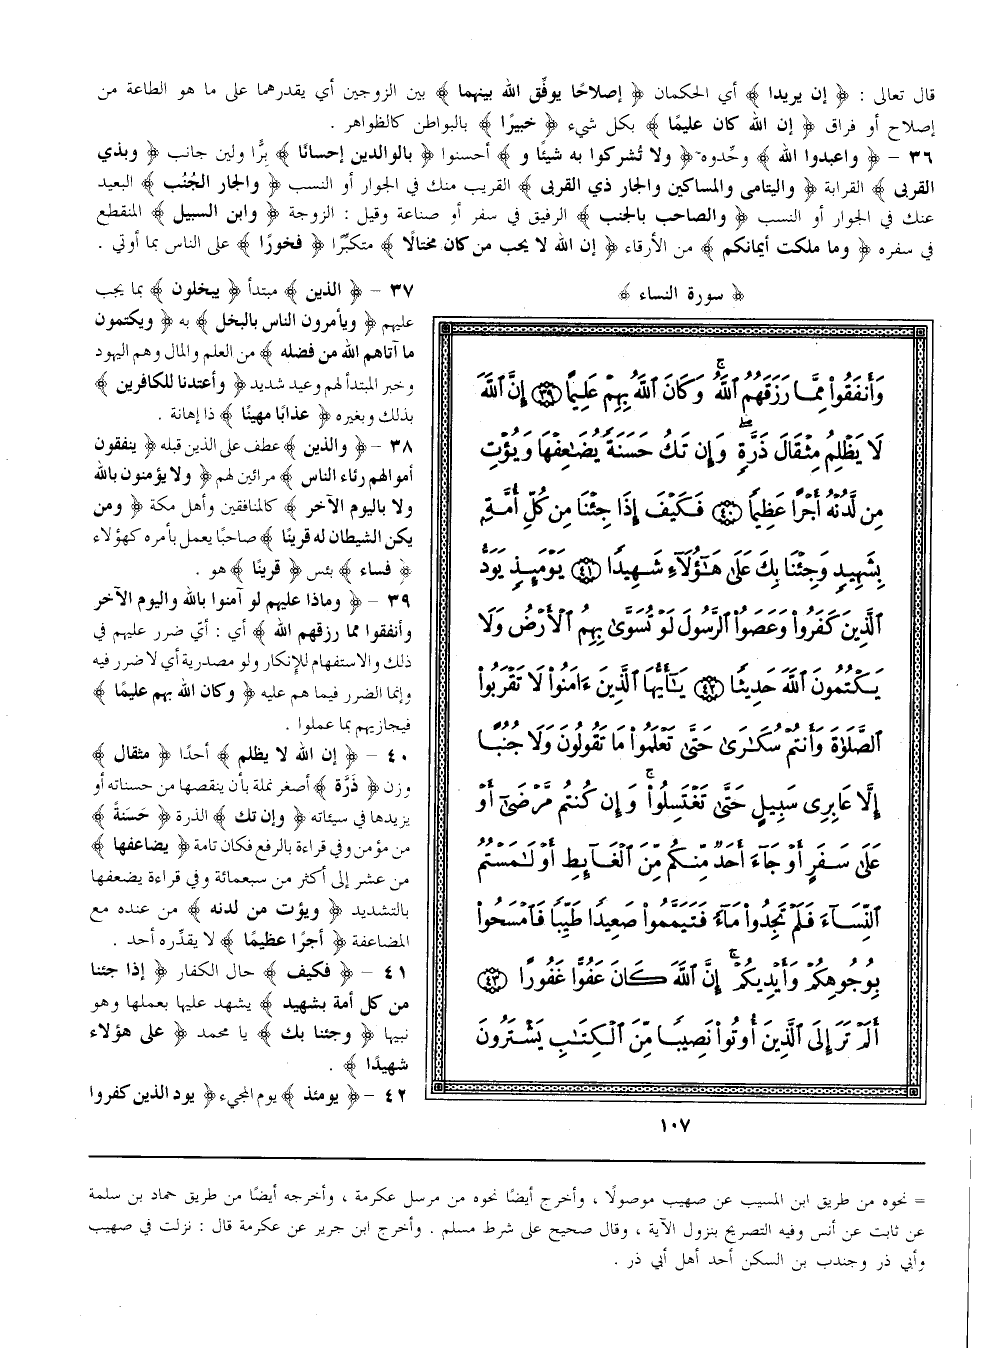 قال تعالى : ﴿ إن يريدا ﴾ أي الحكمان ﴿ إصلاحًا يوفِّق الله بينهما ﴾ بين الزوجين أي يقدرهما على ما هو الطاعة من
إصلاح أو فراق ﴿ إن الله كان عليمًا ﴾ بكل شيء ﴿ خبيرًا ﴾ بالبواطن كالظواهر .
٣٦ – ﴿ واعبدوا الله ﴾ وحِّدوه ﴿ ولا تُشركوا به شيئًا و ﴾ أحسنوا ﴿ بالوالدين إحسانًا ﴾ بِرًّا ولين جانب ﴿ وبذي
القربى ﴾ القرابة ﴿ واليتامى والمساكين والجار ذي القربى ﴾ القريب منك في الجوار أو النسب ﴿ والجار الجُنُب ﴾ البعيد
عنك في الجوار أو النسب ﴿ والصاحب بالجنب ﴾ الرفيق في سفر أو صناعة وقيل : الزوجة ﴿ وابن السبيل ﴾ المنقطع
في سفره ﴿ وما ملكت أيمانكم ﴾ من الأرقاء ﴿ إن الله لا يحب من كان مختالًا ﴾ متكبِّرًا ﴿ فخورًا ﴾ على الناس بما أوتي .
﴿ سورة النساء ﴾
وَأَنفَقُواْ مِمَّا رَزَقَهُمُ ٱللَّهُۚ وَكَانَ ٱللَّهُ بِهِمۡ عَلِيمًا ٣٩ إِنَّ ٱللَّهَ
لَا يَظۡلِمُ مِثۡقَالَ ذَرَّةٖۖ وَإِن تَكُ حَسَنَةٗ يُضَٰعِفۡهَا وَيُؤۡتِ
مِن لَّدُنۡهُ أَجۡرًا عَظِيمٗا ٤٠ فَكَيۡفَ إِذَا جِئۡنَا مِن كُلِّ أُمَّةِۭ
بِشَهِيدٖ وَجِئۡنَا بِكَ عَلَىٰ هَٰٓؤُلَآءِ شَهِيدٗا ٤١ يَوۡمَئِذٖ يَوَدُّ
ٱلَّذِينَ كَفَرُواْ وَعَصَوُاْ ٱلرَّسُولَ لَوۡ تُسَوَّىٰ بِهِمُ ٱلۡأَرۡضُ وَلَا
يَكۡتُمُونَ ٱللَّهَ حَدِيثٗا ٤٢ يَٰٓأَيُّهَا ٱلَّذِينَ ءَامَنُواْ لَا تَقۡرَبُواْ
ٱلصَّلَوٰةَ وَأَنتُمۡ سُكَٰرَىٰ حَتَّىٰ تَعۡلَمُواْ مَا تَقُولُونَ وَلَا جُنُبًا
إِلَّا عَابِرِي سَبِيلٍ حَتَّىٰ تَغۡتَسِلُواْۚ وَإِن كُنتُم مَّرۡضَىٰٓ أَوۡ
عَلَىٰ سَفَرٍ أَوۡ جَآءَ أَحَدٞ مِّنكُم مِّنَ ٱلۡغَآئِطِ أَوۡ لَٰمَسۡتُمُ
ٱلنِّسَآءَ فَلَمۡ تَجِدُواْ مَآءٗ فَتَيَمَّمُواْ صَعِيدٗا طَيِّبٗا فَٱمۡسَحُواْ
بِوُجُوهِكُمۡ وَأَيۡدِيكُمۡۗ إِنَّ ٱللَّهَ كَانَ عَفُوًّا غَفُورًا ٤٣
أَلَمۡ تَرَ إِلَى ٱلَّذِينَ أُوتُواْ نَصِيبٗا مِّنَ ٱلۡكِتَٰبِ يَشۡتَرُونَ
١٠٧
٣٧ – ﴿ الذين ﴾ مبتدأ ﴿ يبخلون ﴾ بما يجب
عليهم ﴿ ويأمرون الناس بالبخل ﴾ به ﴿ ويكتمون
ما آتاهم الله من فضله ﴾ من العلم والمال وهم اليهود
وخبر المبتدأ لهم وعيد شديد ﴿ وأعتدنا للكافرين ﴾
بذلك وبغيره ﴿ عذابًا مهينًا ﴾ ذا إهانة .
٣٨ – ﴿ والذين ﴾ عطف على الذين قبله ﴿ ينفقون
أموالهم رئاء الناس ﴾ مرائين لهم ﴿ ولا يؤمنون بالله
ولا باليوم الآخر ﴾ كالمنافقين وأهل مكة ﴿ ومن
يكن الشيطان له قرينًا ﴾ صاحبًا يعمل بأمره كهؤلاء
﴿ فساء ﴾ بئس ﴿ قرينًا ﴾ هو .
٣٩ – ﴿ وماذا عليهم لو آمنوا بالله واليوم الآخر
وأنفقوا مما رزقهم الله ﴾ أي : أيّ ضرر عليهم في
ذلك والاستفهام للإنكار ولو مصدرية أي لا ضرر فيه
وإنما الضرر فيما هم عليه ﴿ وكان الله بهم عليمًا ﴾
فيجازيهم بما عملوا .
٤٠ – ﴿ إن الله لا يظلم ﴾ أحدًا ﴿ مثقال ﴾
وزن ﴿ ذَرَّة ﴾ أصغر نملة بأن ينقصها من حسناته أو
يزيدها في سيئاته ﴿ وإن تك ﴾ الذرة ﴿ حَسَنةً ﴾
من مؤمن وفي قراءة بالرفع فكان تامة ﴿ يضاعفها ﴾
من عشر إلى أكثر من سبعمائة وفي قراءة يضعفها
بالتشديد ﴿ ويؤت من لدنه ﴾ من عنده مع
المضاعفة ﴿ أجرًا عظيمًا ﴾ لا يقدِّره أحد .
٤١ – ﴿ فكيف ﴾ حال الكفار ﴿ إذا جئنا
من كل أمة بشهيد ﴾ يشهد عليها بعملها وهو
نبيها ﴿ وجئنا بك ﴾ يا محمد ﴿ على هؤلاء
شهيدًا ﴾ .
٤٢ – ﴿ يومئذ ﴾ يوم المجيء ﴿ يود الذين كفروا
= نحوه من طريق ابن المسيب عن صهيب موصولًا ، وأخرج أيضًا نحوه من مرسل عكرمة ، وأخرجه أيضًا من طريق حماد بن سلمة
عن ثابت عن أنس وفيه التصريح بنزول الآية ، وقال صحيح على شرط مسلم . وأخرج ابن جرير عن عكرمة قال : نزلت في صهيب
وأبي ذر وجندب بن السكن أحد أهل أبي ذر .